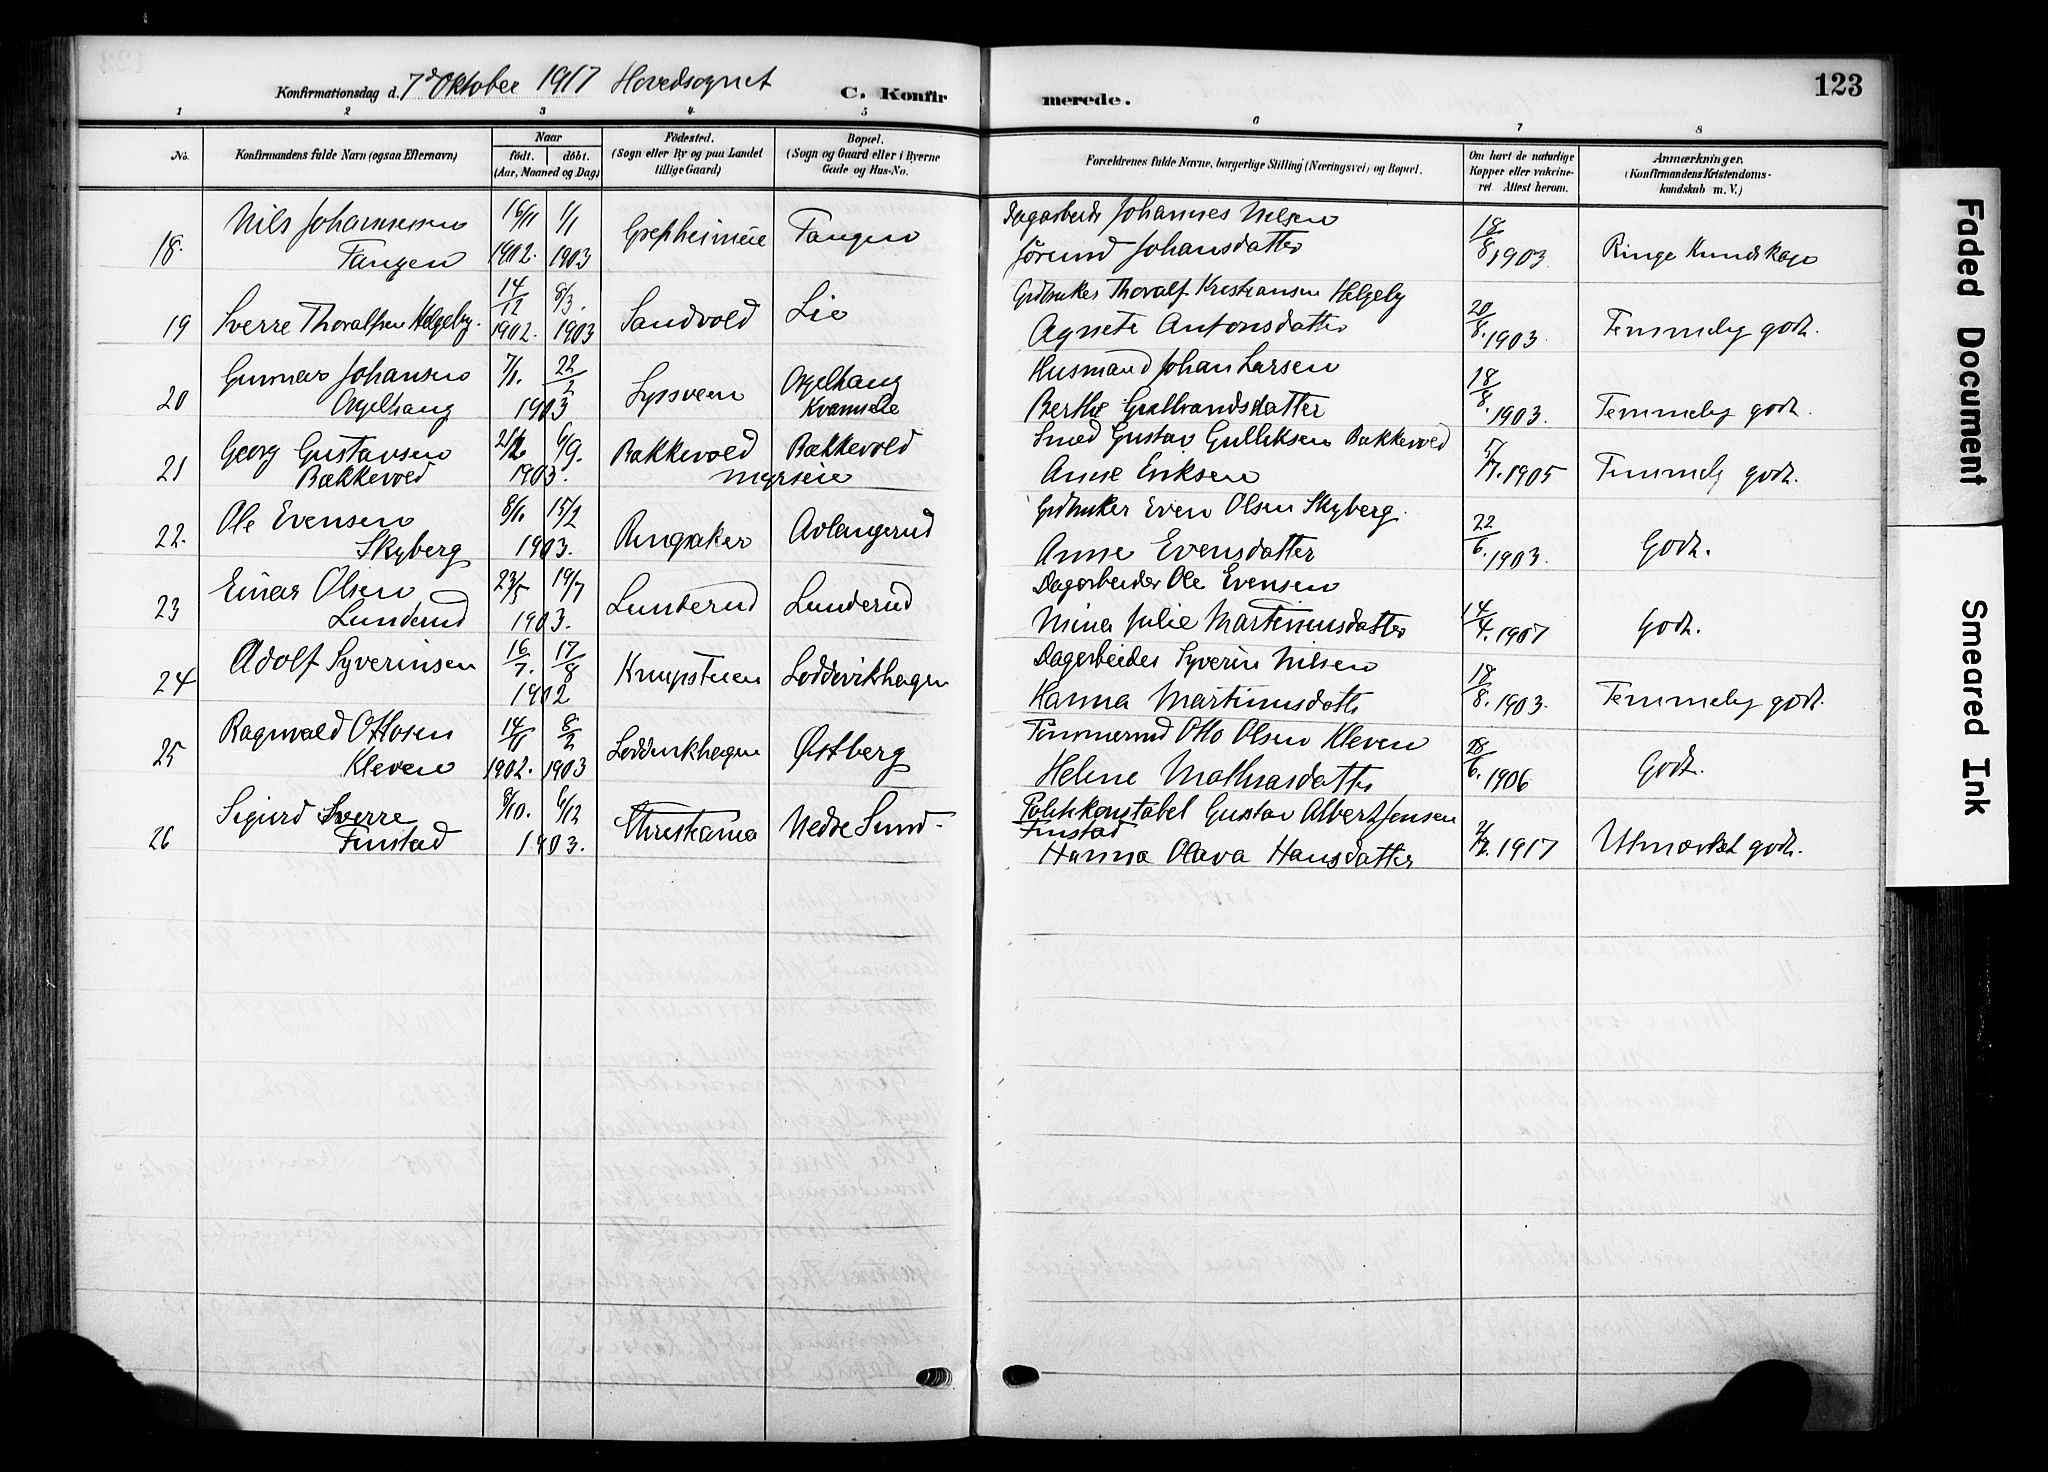 Konfirmationsdag d. 7d Oktober 1917 Hovedsognet
C. Konfirmerede.
123
1 2 3 4 5 6 7 8
No.
Konfirmandens fulde Navn (ogsaa Efternavn)
Naar
født. døbt.
(Aar, Maaned og Dag)
Fødested.
(Sogn eller By og paa Landet
tillige Gaard)
Bopæl.
(Sogn og Gaard eller i Byerne
Gade og Hus-No.
Forældrenes fulde Navne, borgerlige Stilling (Næringsvei) og Bopæl.
Om havt de naturlige
Kopper eller vakcine-
ret. Attest herom.
Anmærkninger.
(Konfirmandens Kristendoms-
kundskab m. V.)
18. Nils Johannessen
Tangen
16/11 1902. 1/1 1903
Tangen
Johannes Nilsen
Jörund Johansdatter
18/8 1903
Ringe Kundskap
19 Sverre Thoralfsen Helgeby.
14/12 1902. 8/3. 1903
Sandvold
Lie
Grdbruker Thoralf Kristiansen Helgeby
Agnete Antonsdatter
20/8. 1903.
Temmelig godt.
20 Gunnar Johansen
7/1. 22/2
1903
Husmand Johan Larsen
Berthe Gulbrandsdatter
18/8. 1903.
Temmelig godt.
21 Georg Gustavsen
Bækkevold
6/9.
1903.
Bakkevold
Bækkevold
Myrseie
Smed Gustav Gulliksen Bakkevold
Anne Eriksen
1905
Temmelig godt.
22. Ole Evensen
Skyberg
8/1. 15/2
1903.
Ringsaker
Avlangerud
Grdbruker Even Olsen Skyberg.
Anne Evensdatter
22/6. 1903.
Godt.
23 Einar Olsen
Lunderud
23/5 19/7
1903.
Lunderud
Lunderud
Dagarbeider Ole Evensen
Mina Julie Martinusdatter
14/4. 1907
Godt.
24 Adolf Syverinsen
16/7. 17/8
1902
Knapstuen
Loddvikhagen
Dagarbeider Syverin Nilsen
Hanna Martinusdatter
18/8. 1903.
Temmelig godt.
25 Ragnvald Ottosen
Kleven
14/11 1902. 8/2 1903
Loddvikhagen
Østberg
Tömmermd Otto Olsen Kleven
Helene Mathiasdatter
28/6. 1906
Godt.
26 Sigurd Sverre
Finstad
8/10. 6/12
1903.
Christiania
Nedre Sund
Politikonstabel Gustav Albert Jensen
Finstad
Hanna Olava Hansdatter
1917
Utmærket godt.
Faded Document
Smeared Ink